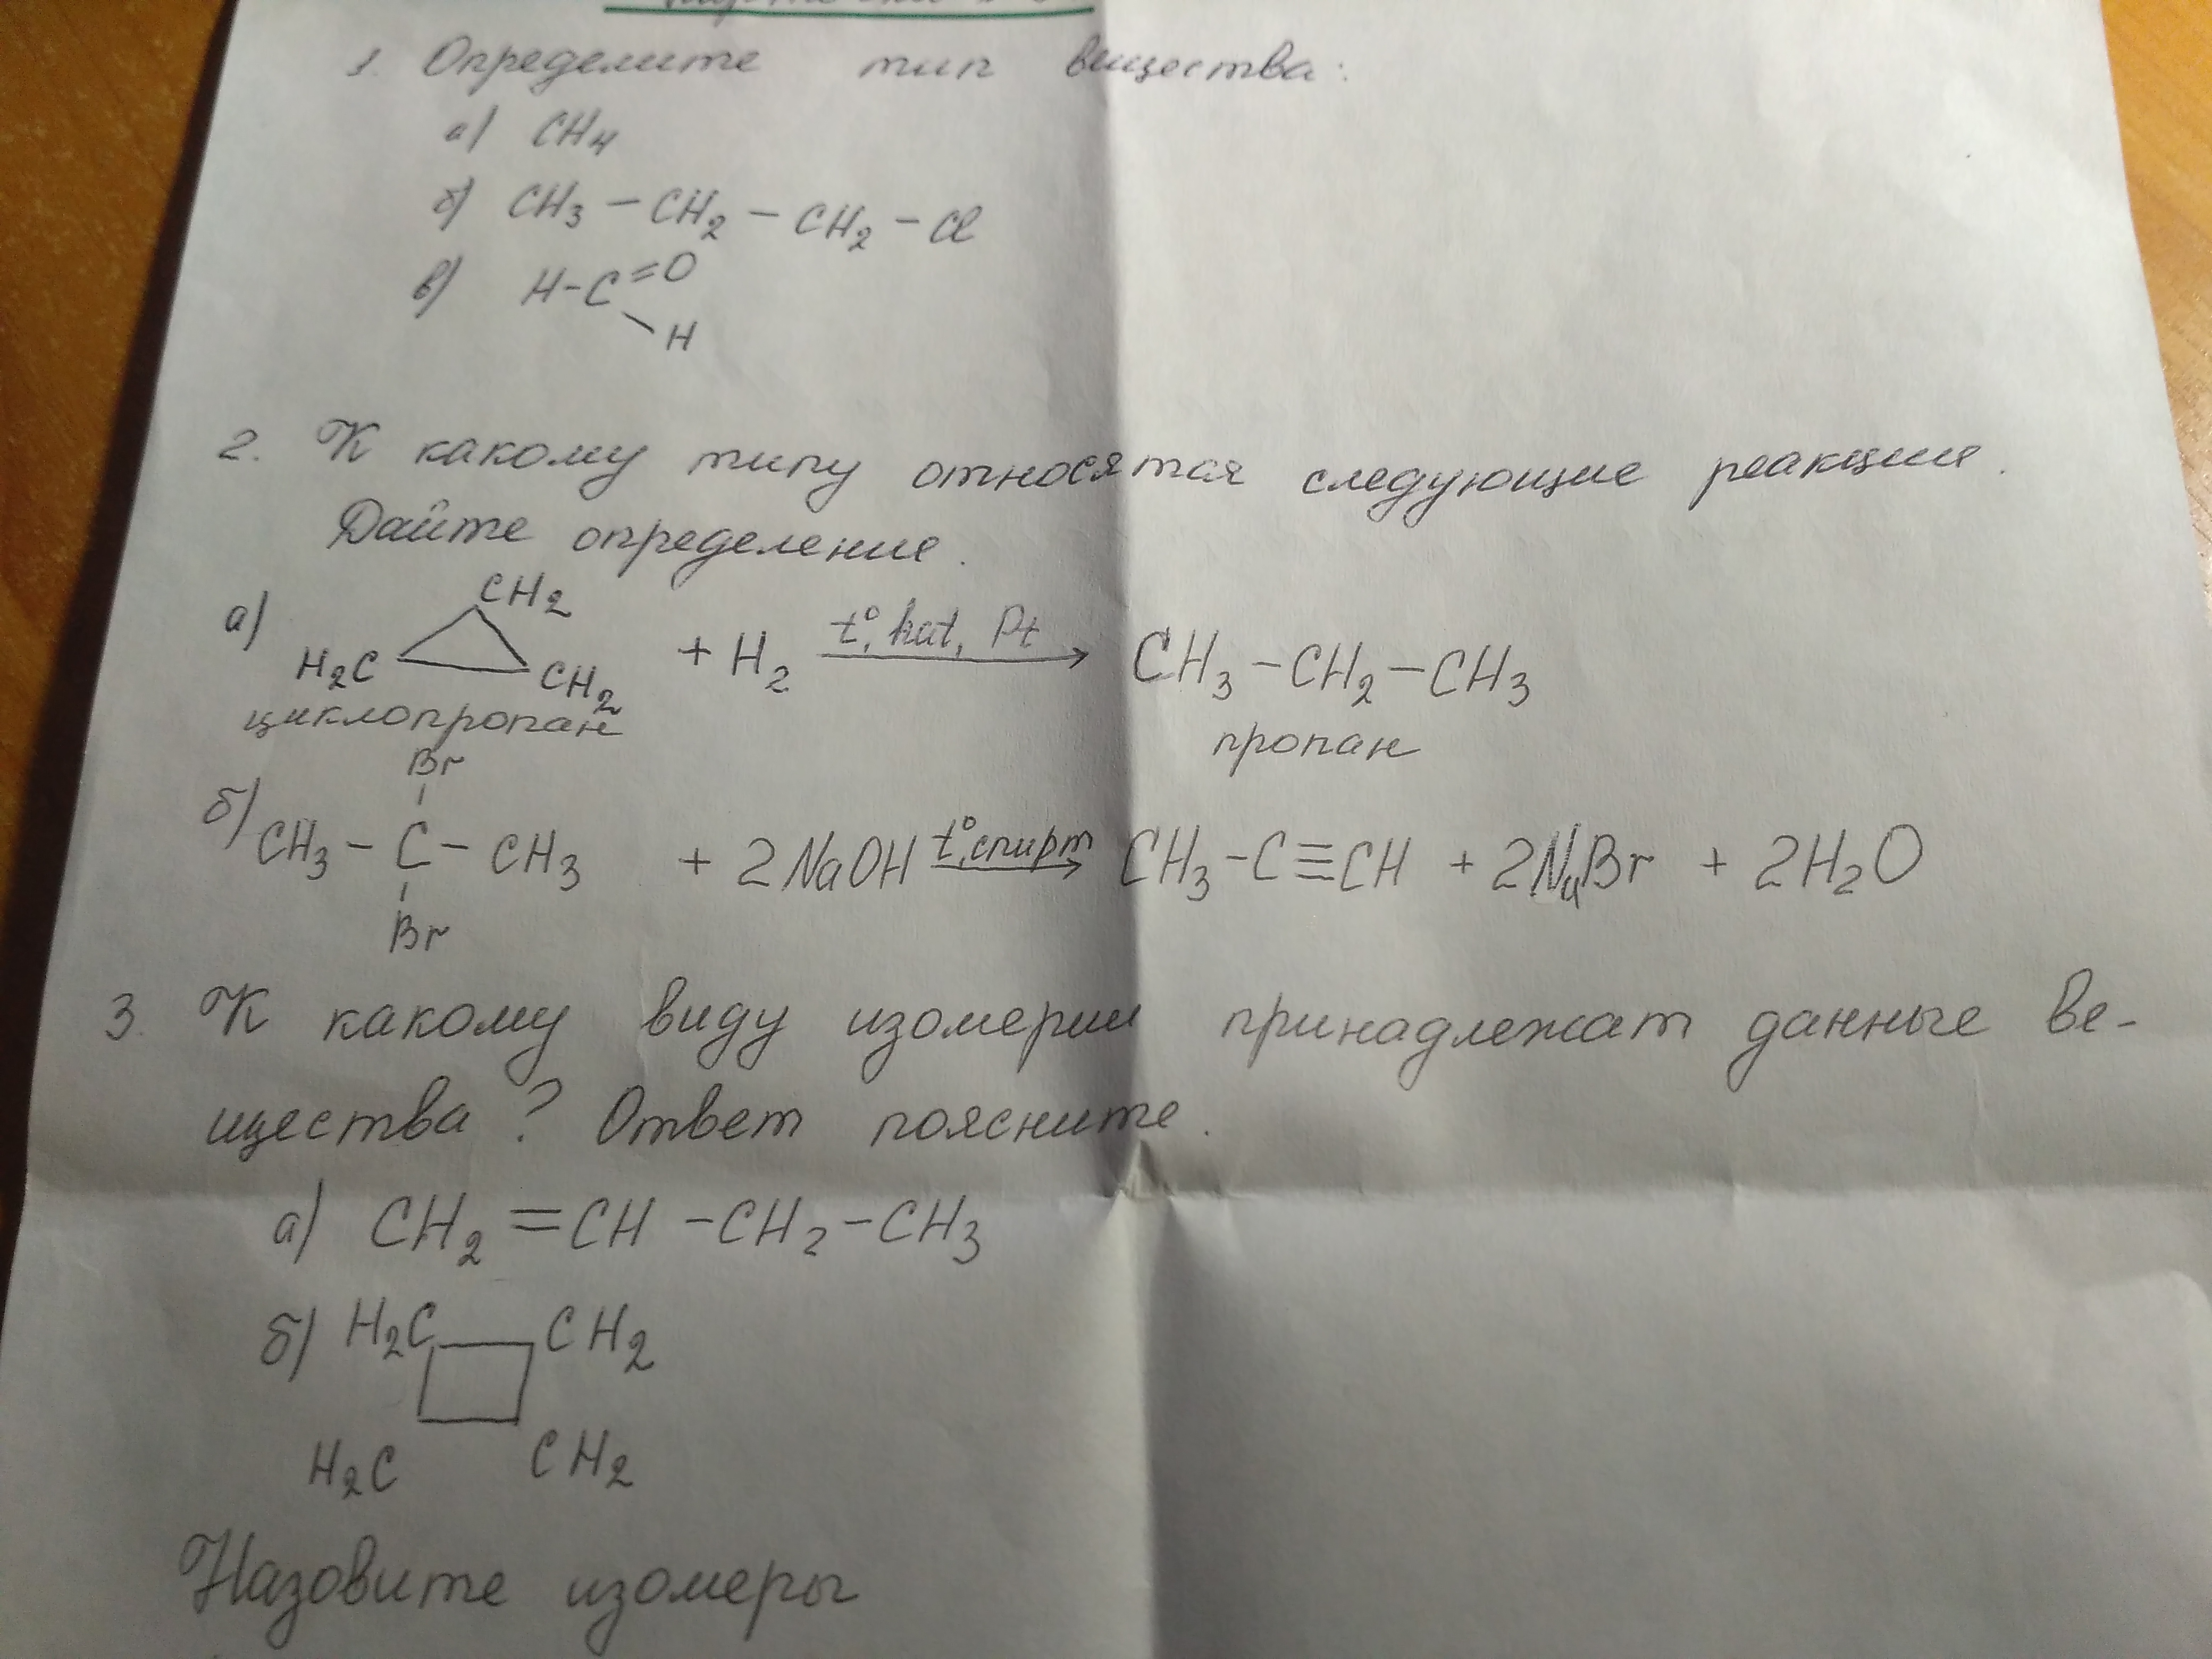 1. Определите тип вещества:
а) CH4
б) CH3 – CH2 – CH2 – Cl
в) H-C=O
H
2. К какому типу относятся следующие реакции.
Дайте определение.
а) CH2
H2C CH2 + H2 t°, kat, Pt CH3 – CH2 – CH3
циклопропан пропан
Br
б) CH3 – C – CH3 + 2NaOH t°, спирт CH3 – C ≡ CH + 2NaBr + 2H2O
Br
3. К какому виду изомерии принадлежат данные ве-
щества? Ответ поясните.
а) CH2 = CH – CH2 – CH3
б) H2C CH2
H2C CH2
Назовите изомеры